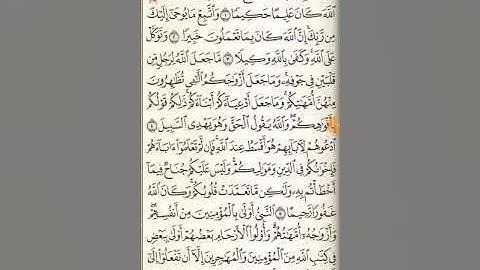 ٱللَّهَ كَانَ عَلِيمًا حَكِيمًا ١ وَٱتَّبِعْ مَا يُوحَىٰٓ إِلَيْكَ
مِن رَّبِّكَ إِنَّ ٱللَّهَ كَانَ بِمَا تَعْمَلُونَ خَبِيرًا ٢ وَتَوَكَّلْ
عَلَى ٱللَّهِ وَكَفَىٰ بِٱللَّهِ وَكِيلًا ٣ مَّا جَعَلَ ٱللَّهُ لِرَجُلٍ مِّن
قَلْبَيْنِ فِى جَوْفِهِۦ وَمَا جَعَلَ أَزْوَٰجَكُمُ ٱلَّٰٓـِٔى تُظَٰهِرُونَ
مِنْهُنَّ أُمَّهَٰتِكُمْ وَمَا جَعَلَ أَدْعِيَآءَكُمْ أَبْنَآءَكُمْ ذَٰلِكُمْ قَوْلُكُم
بِأَفْوَٰهِكُمْ وَٱللَّهُ يَقُولُ ٱلْحَقَّ وَهُوَ يَهْدِى ٱلسَّبِيلَ ٤
ٱدْعُوهُمْ لِءَابَآئِهِمْ هُوَ أَقْسَطُ عِندَ ٱللَّهِ فَإِن لَّمْ تَعْلَمُوٓا۟ ءَابَآءَهُمْ
فَإِخْوَٰنُكُمْ فِى ٱلدِّينِ وَمَوَٰلِيكُمْ وَلَيْسَ عَلَيْكُمْ جُنَاحٌ فِيمَآ
أَخْطَأْتُم بِهِۦ وَلَٰكِن مَّا تَعَمَّدَتْ قُلُوبُكُمْ وَكَانَ ٱللَّهُ
غَفُورًا رَّحِيمًا ٥ ٱلنَّبِىُّ أَوْلَىٰ بِٱلْمُؤْمِنِينَ مِنْ أَنفُسِهِمْ
وَأَزْوَٰجُهُۥٓ أُمَّهَٰتُهُمْ وَأُو۟لُوا۟ ٱلْأَرْحَامِ بَعْضُهُمْ أَوْلَىٰ بِبَعْضٍ
فِى كِتَٰبِ ٱللَّهِ مِنَ ٱلْمُؤْمِنِينَ وَٱلْمُهَٰجِرِينَ إِلَّآ أَن تَفْعَلُوٓا۟ إِلَىٰٓ